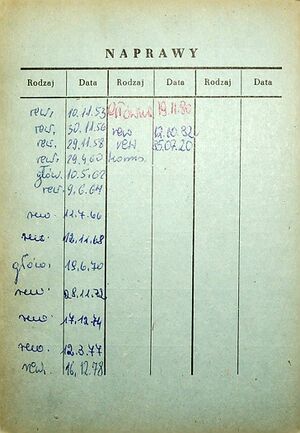 NAPRAWY
Rodzaj Data Rodzaj Data Rodzaj Data
rew. 10.11.53 główna 19.11.80
rew. 30.11.56 rew 12.10.82
rew. 29.11.58 rew
rew. 29.4.60
głów. 10.5.62
rew. 9.6.64
rew. 11.7.66
rew. 12.11.68
głów. 19.6.70
rew. 28.11.72
rew. 17.12.74
rew. 12.3.77
rew. 16.12.78